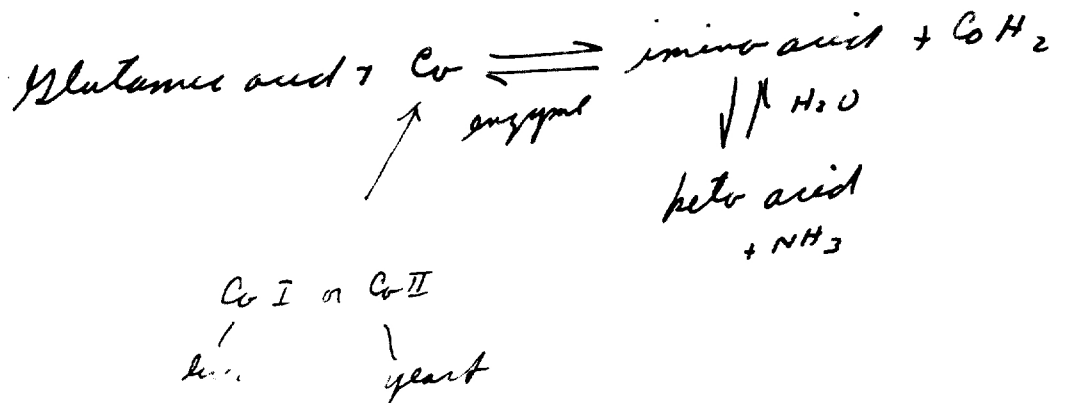 Glutamic acid + Co ⇌ imino acid + CoH₂
enzyme
↓↑ H₂O
keto acid
+ NH₃
Co I or Co II
yeast